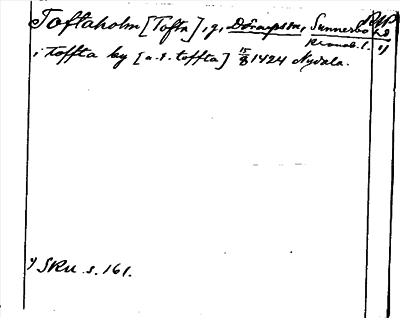 Toftaholm [Tofta], g, Dörarps sn, Sunnerbo hd
Kronob. l.
i toffta by [a. s. toffta] 15/8 1424 Nydala. 1)
1) SRU s. 161.